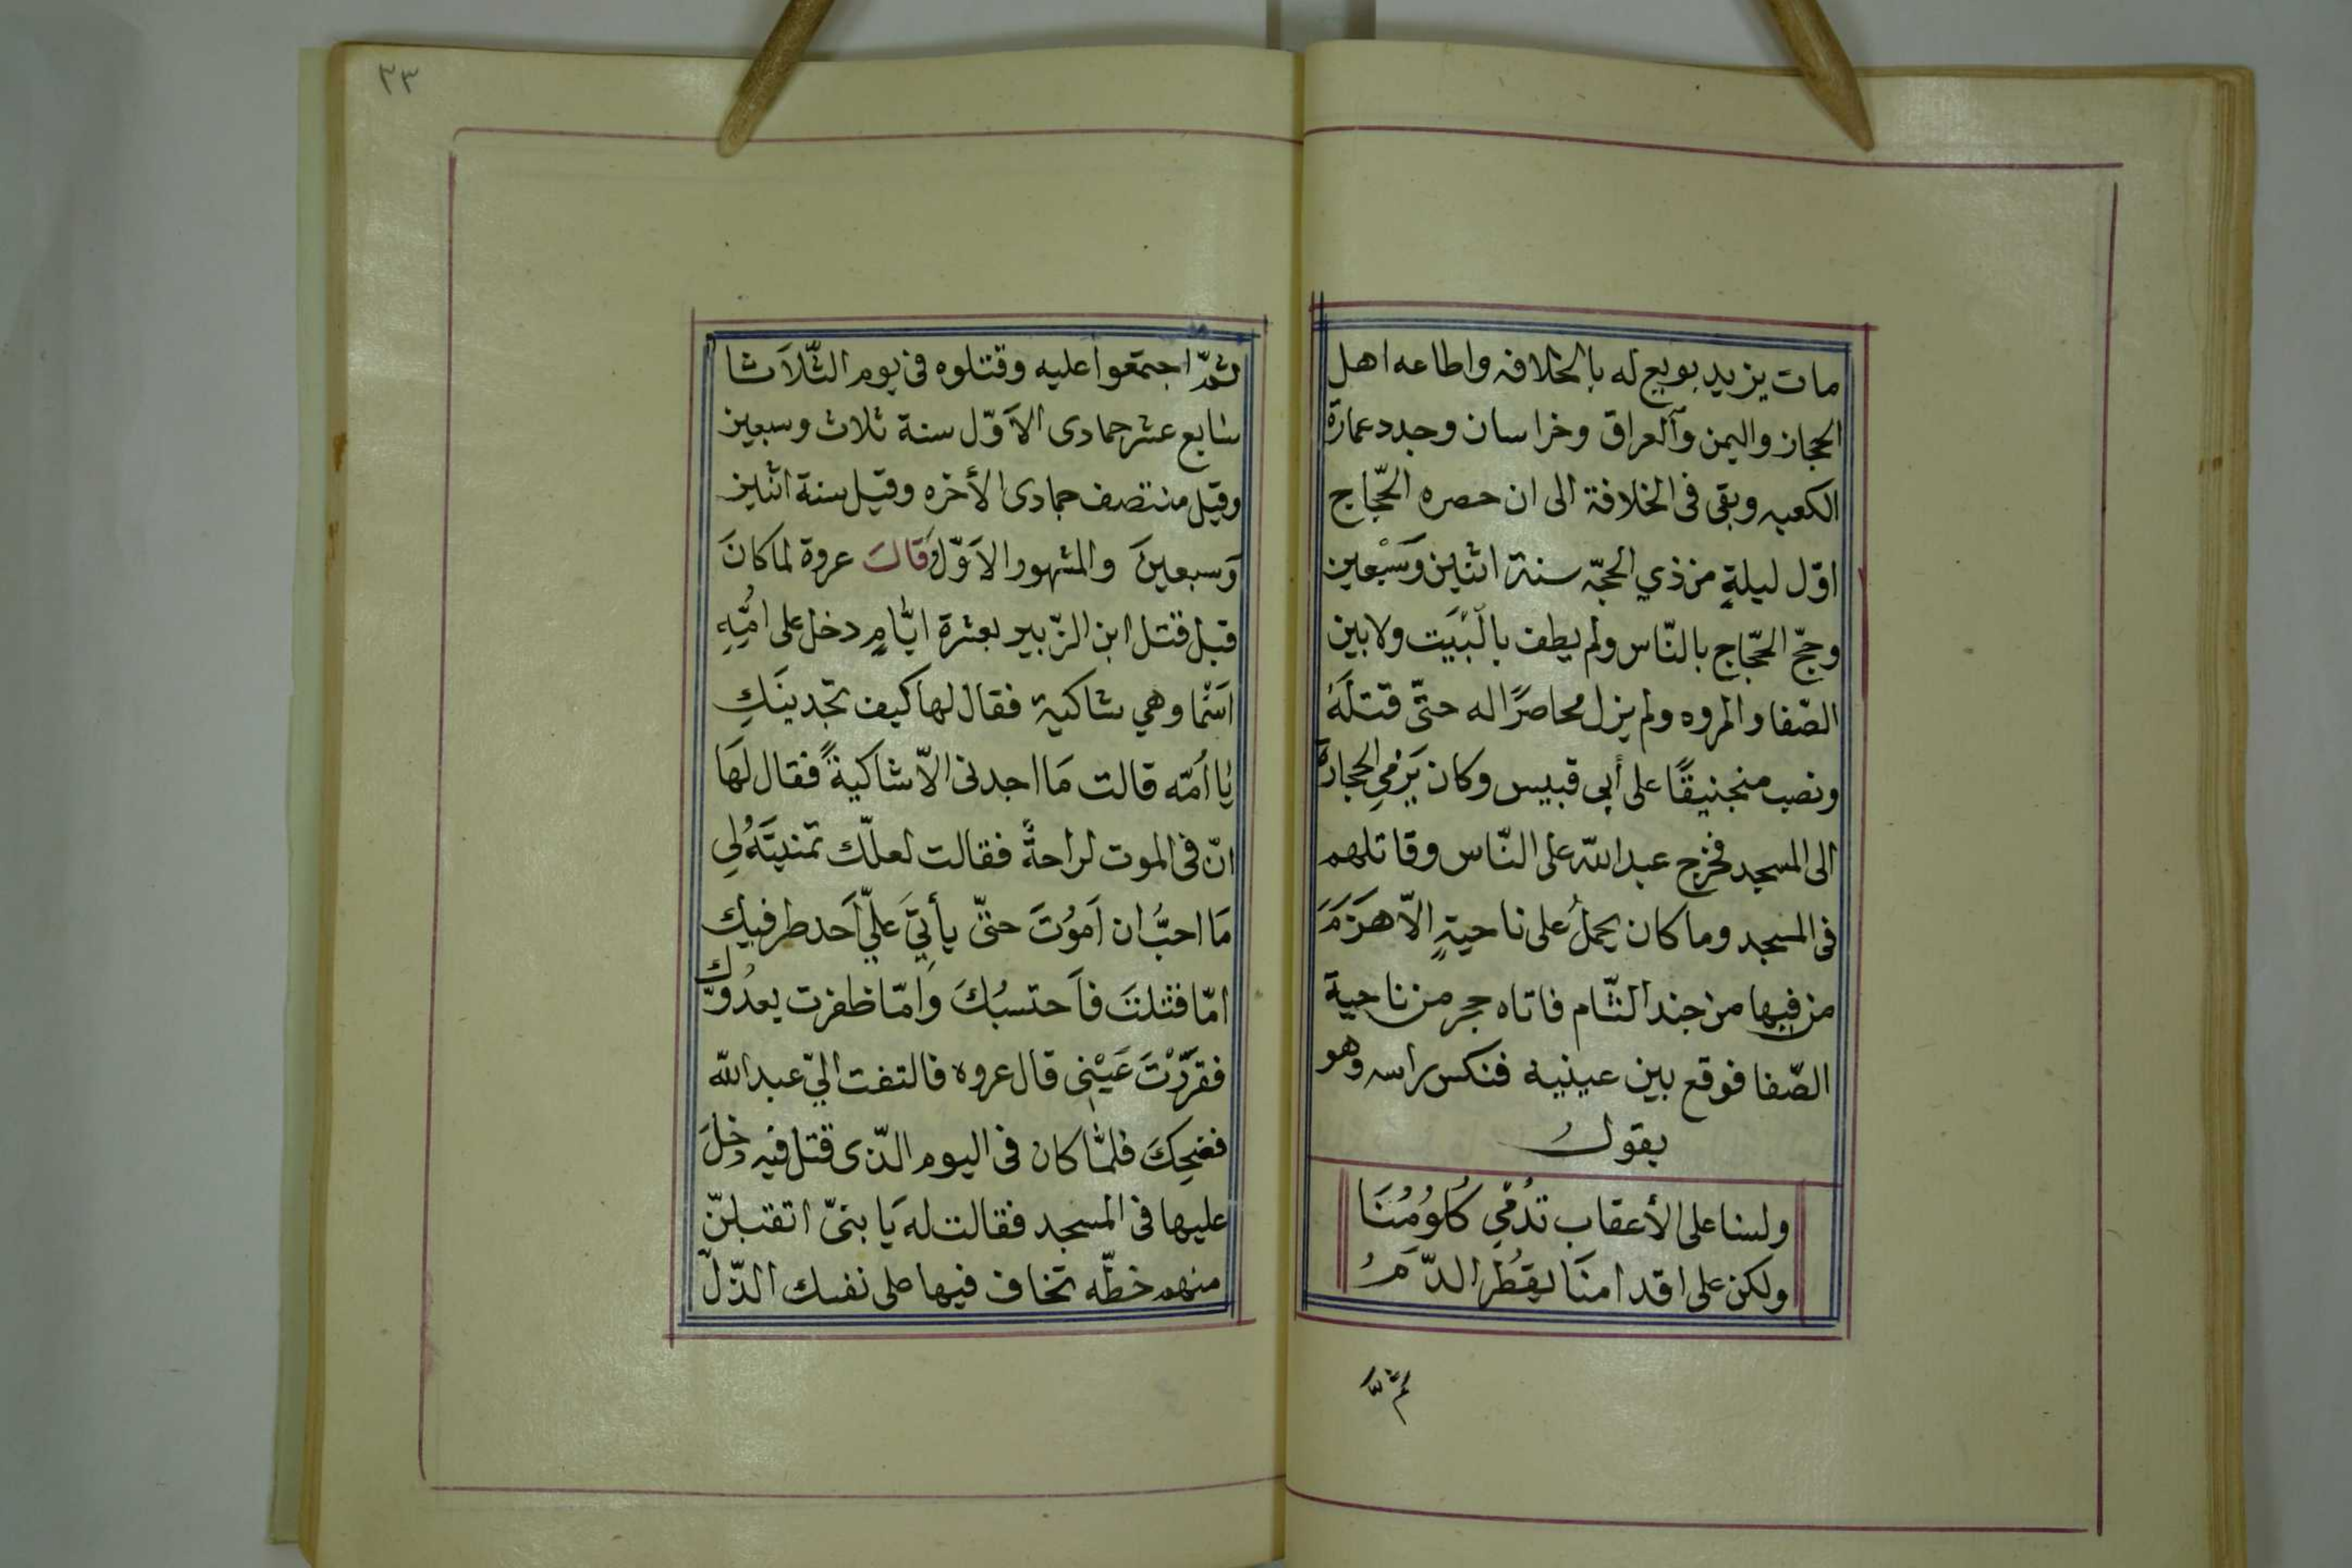 مات يزيد بويع له بالخلافه واطاعه اهل
الحجاز واليمن والعراق وخراسان وجدد عمارة
الكعبه وبقى فى الخلافة الى ان حصره الحّجاج
اوّل ليلةٍ من ذي الحجّه سنة اثنين وَسَبْعين
وحجّ الحّجاج بالنّاس ولم يطف بالْبَيَت ولا بين
الصّفا والمروه ولم يزل محاصرًا له حتّى قتلَهُ
ونصب منجنيقًا على أبى قبيس وكان يَرْمي الحجارة
الى المسجد فخرج عبد الله على النّاس وقاتلهم
فى المسجد وما كان يحملُ على ناحيةٍ الّا هَزَمَ
من فيها من جند الشّام فاتاه حجر من ناحية
الصّفا فوقع بين عينيه فنكس راسه وهو
يقولُ
ولسنا على الأعقاب تدُمْي كُلوُمُنَا
ولكن على اقدامنَا يقطُر الدّمَُ
ثمّ
٣٣
ثمّ اجتمَعوا عليه وقتلوه فى يوم الثّلاَثا
سابع عشر جمادى الاَوّل سنة ثلاث وسبعين
وقيل منتصف جمادى الأخره وقيل سنة اثنين
وَسبعينَ والمشهور الاَوّل وَقالَ عروة لما كانَ
قبل قتل ابن الزّبير بعشرة ايّامٍ دخل على امُّهِ
اسَمْا وهي شاكية فقال لها كيف تجدينَكِ
يا اُمّه قالت مَا اجدنى الّا شاكيةً فقال لهَا
انّ فى الموت لراحةً فقالت لعلّك تمنيتَهُ لي
مَا احبُّ ان اَموُتَ حتىّ يأتيَ عليّ اَحد طرفيك
امّا قتلتَ فاَحتسبُكَ وَامّا ظفرت بعدُوّك
فقَرّتْ عَيْنِى قال عروه فالتفت اليّ عبد الله
فضحِكَ فلمّا كان فى اليوم الذّى قتل فيه دخلَ
عليها فى المسجد فقالت له يَا بنىّ ا تقبلنّ
منهم خطّه تخاف فيها على نفسك الذّلّ